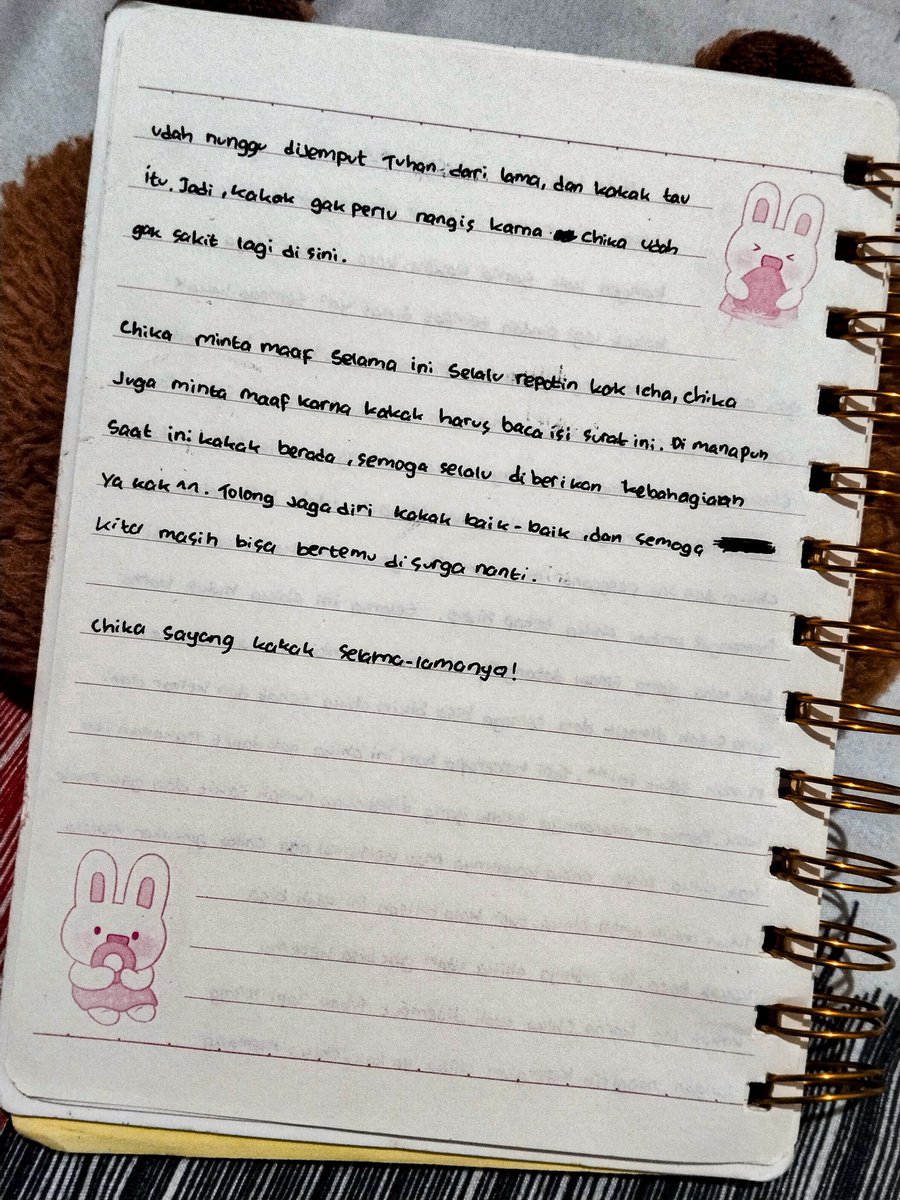 udah nunggu dijemput Tuhan dari lama, dan kakak tau
itu. Jadi, kakak gak perlu nangis karna Chika udah
gak sakit lagi di sini.
Chika minta maaf selama ini selalu repotin kak Icha, chika
Juga minta maaf karna kakak harus baca isi surat ini. Di manapun
saat ini kakak berada, semoga selalu diberikan kebahagiaan
ya kak ^^. Tolong jaga diri kakak baik-baik, dan semoga
kita masih bisa bertemu di surga nanti.
Chika sayang kakak selama-lamanya!